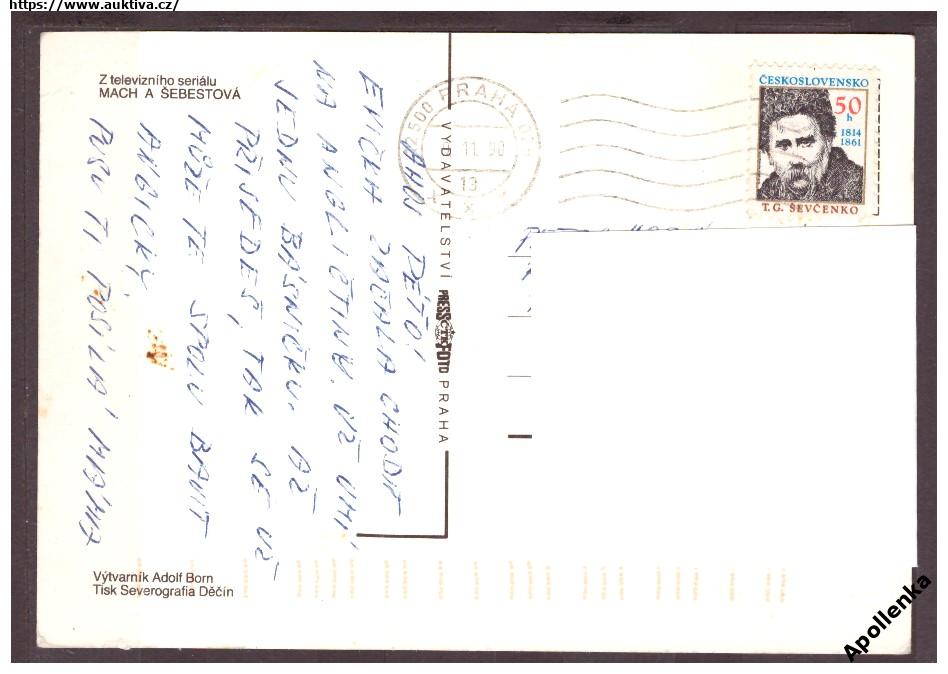 https://www.auktiva.cz/
Z televizního seriálu
MACH A ŠEBESTOVÁ
AHOJ PÉŤO!
EVIČKA ZAČALA CHODIT
NA ANGLIČTINU. UŽ UMÍ
JEDNU BÁSNIČKU. AŽ
PŘIJEDEŠ, TAK SE UŽ
MŮŽETE SPOLU BAVIT
ANGLICKY.
PUSU TI POSÍLÁ
VYDAVATELSTVÍ PRESSFOTO PRAHA
PRAHA
11. 90
13
ČESKOSLOVENSKO
50
h
1814
1861
T. G. ŠEVČENKO
Výtvarník Adolf Born
Tisk Severografia Děčín
Apollenka